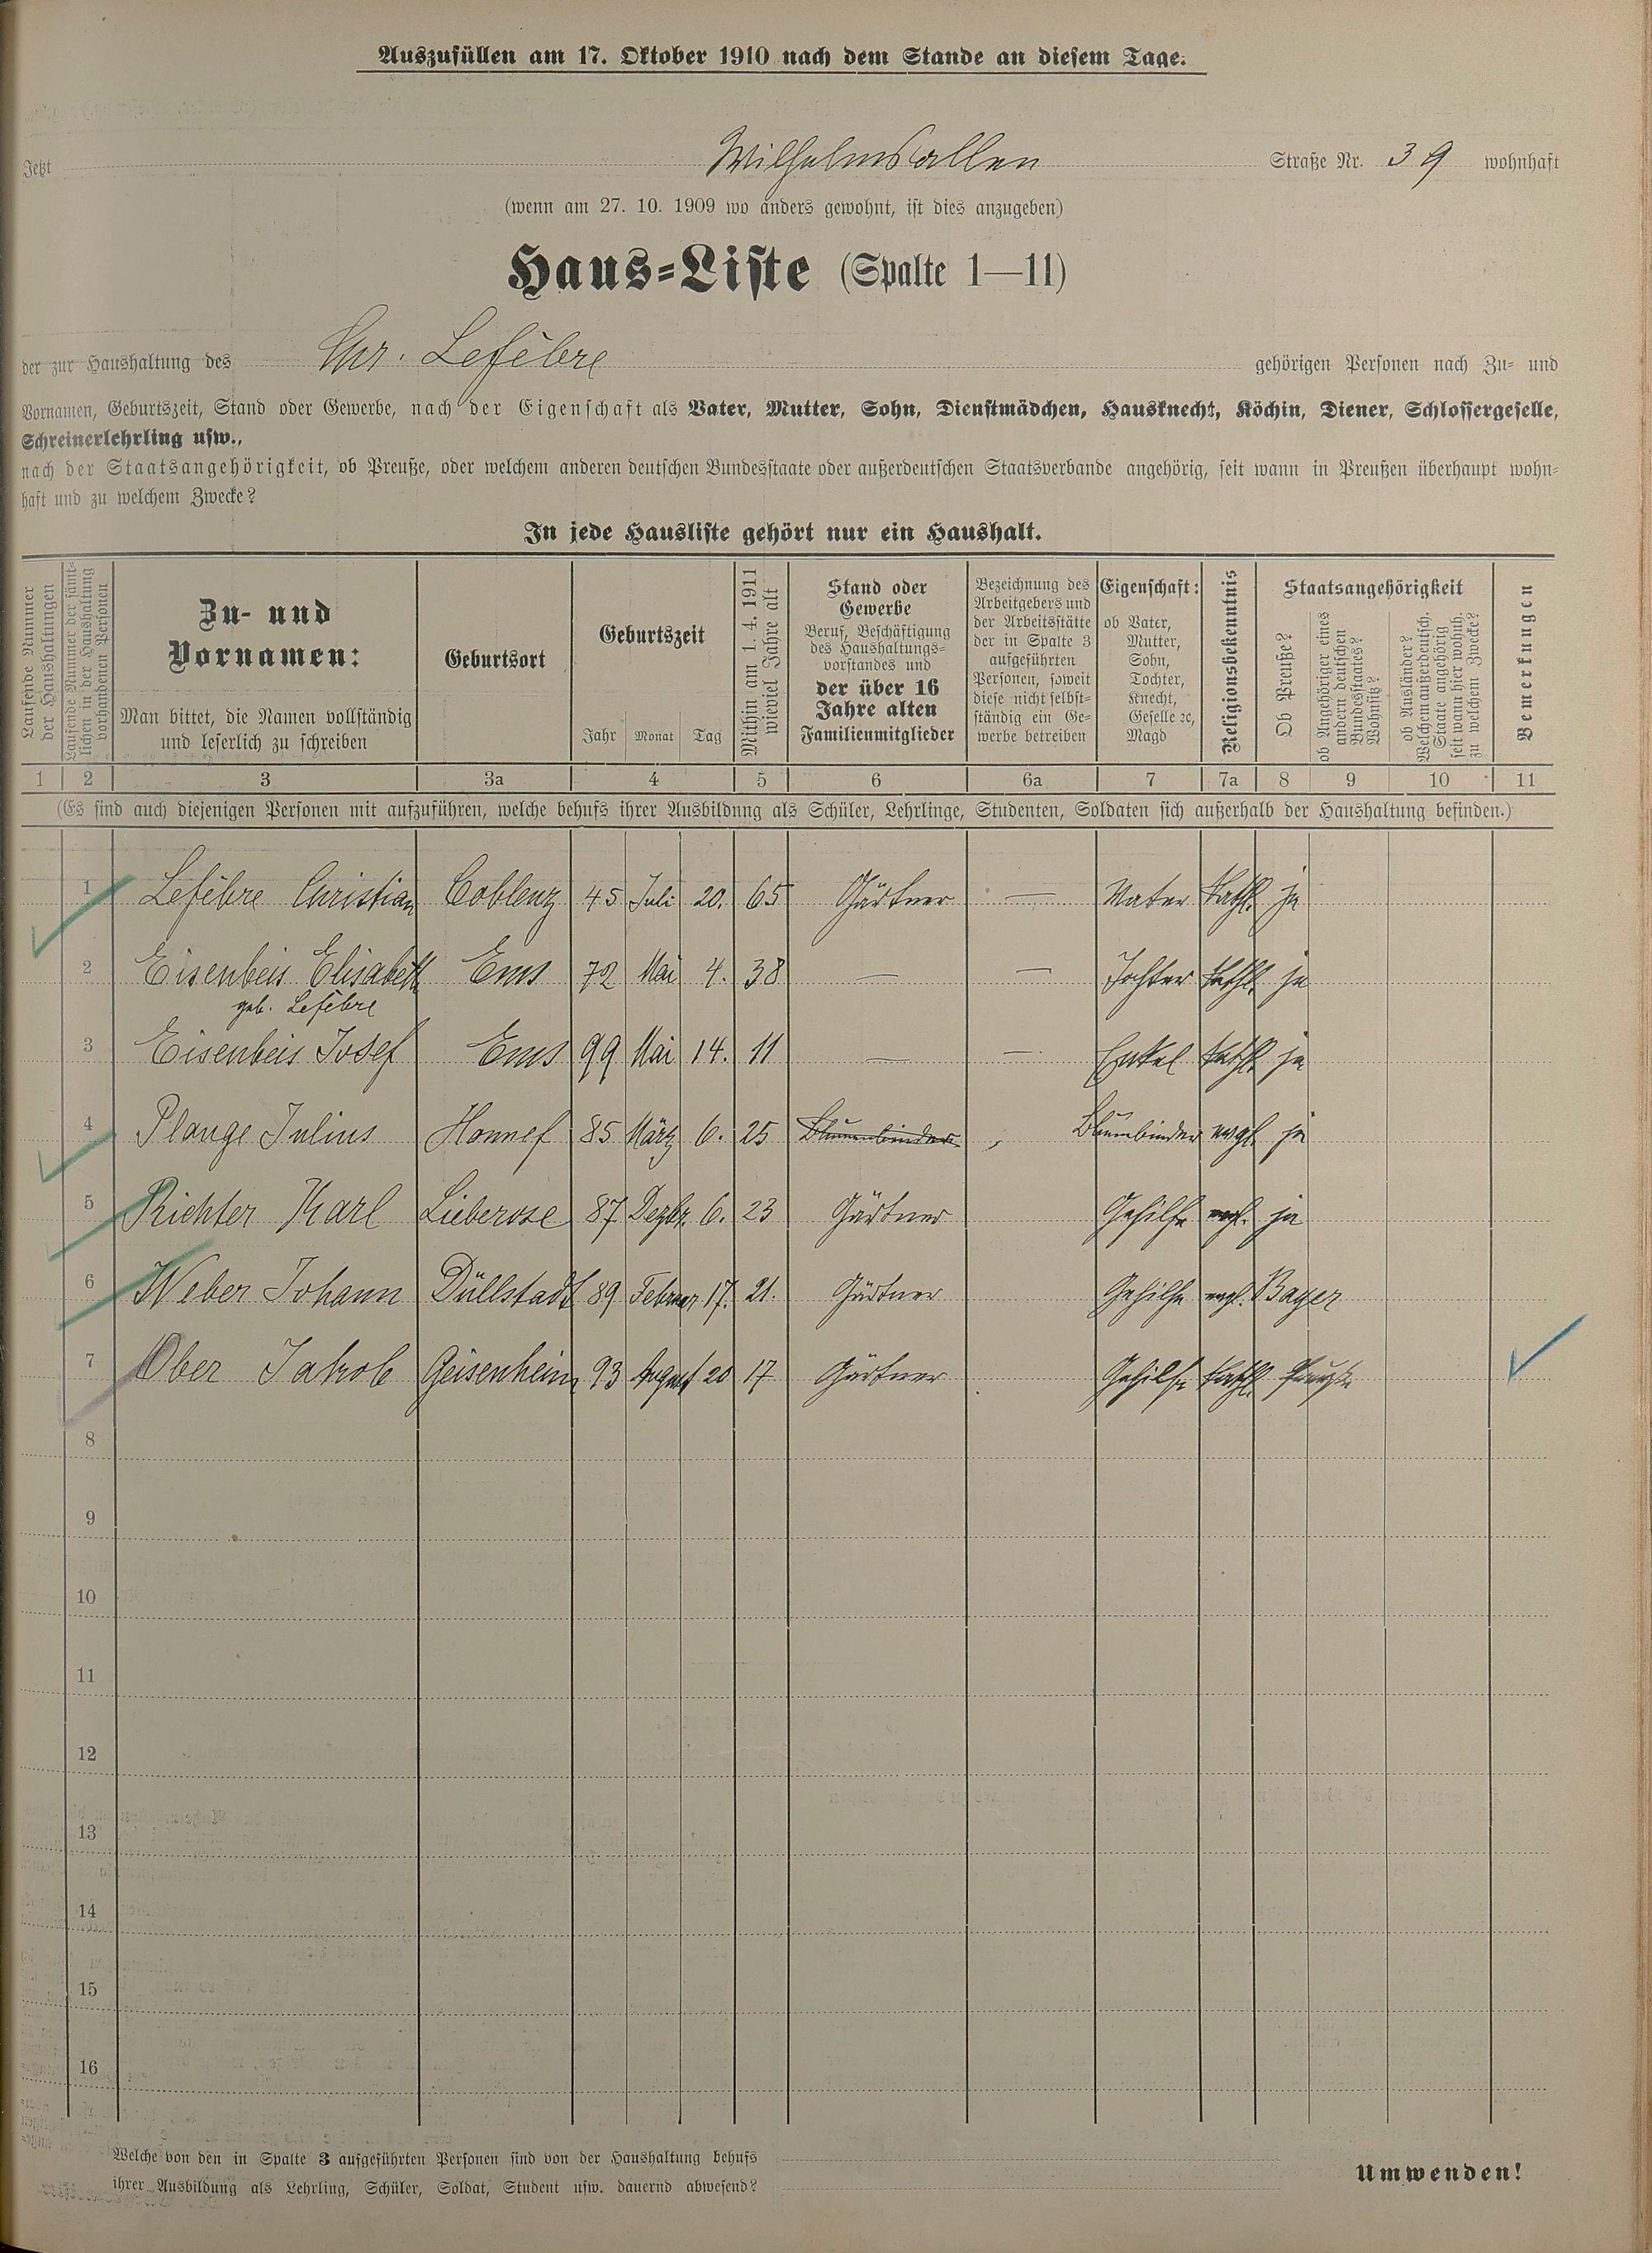 Auszufüllen am 17. Oktober 1910 nach dem Stande an diesem Tage.
Jetzt Wilhelmsallen Straße Nr. 39 wohnhaft
(wenn am 27. 10. 1909 wo anders gewohnt, ist dies anzugeben)
Haus=Liste (Spalte 1—11)
der zur Haushaltung des Chr. Lefèbre gehörigen Personen nach Zu= und
Vornamen, Geburtszeit, Stand oder Gewerbe, nach der Eigenschaft als Vater, Mutter, Sohn, Dienstmädchen, Hausknecht, Köchin, Diener, Schlossergeselle,
Schreinerlehrling usw.,
nach der Staatsangehörigkeit, ob Preuße, oder welchem anderen deutschen Bundesstaate oder außerdeutschen Staatsverbande angehörig, seit wann in Preußen überhaupt wohn=
haft und zu welchem Zwecke?
In jede Hausliste gehört nur ein Haushalt.
Laufende Nummer
der Haushaltungen
Laufende Nummer der sämt=
lichen in der Haushaltung
vorhandenen Personen
Zu- und
Vornamen:
Man bittet, die Namen vollständig
und leserlich zu schreiben
Geburtsort
Geburtszeit
Jahr Monat Tag
Mithin am 1. 4. 1911
wieviel Jahre alt
Stand oder
Gewerbe
Beruf, Beschäftigung
des Haushaltungs=
vorstandes und
der über 16
Jahre alten
Familienmitglieder
Bezeichnung des
Arbeitgebers und
der Arbeitsstätte
der in Spalte 3
aufgeführten
Personen, soweit
diese nicht selbst=
ständig ein Ge=
werbe betreiben
Eigenschaft:
ob Vater,
Mutter,
Sohn,
Tochter,
Knecht,
Geselle ꝛc,
Magd
Religionsbekenntnis
Staatsangehörigkeit
Ob Preuße?
ob Angehöriger eines
andern deutschen
Bundesstaates?
Wohnsitz?
ob Ausländer?
Welchem außerdeutsch.
Staate angehörig
seit wann hier wohnh.
zu welchem Zwecke?
Bemerkungen
1 2 3 3a 4 5 6 6a 7 7a 8 9 10 11
(Es sind auch diejenigen Personen mit aufzuführen, welche behufs ihrer Ausbildung als Schüler, Lehrlinge, Studenten, Soldaten sich außerhalb der Haushaltung befinden.)
1 Lefèbre Christian Coblenz 45 Juli 20. 65 Gärtner — Vater kathl. ja
2 Eisenbeis Elisabeth Ems 72 Mai 4. 38 — — Tochter kathl. ja
geb. Lefèbre
3 Eisenbeis Josef Ems 99 Mai 14. 11 — — Enkel kathl. ja
4 Plange Julius Honnef 85 März 6. 25 Blumenbinder Blumbinder evgl. ja
5 Richter Karl Lieberose 87 Dezbr. 6. 23 Gärtner Gehilfe evgl. ja
6 Weber Johann Düllstadt 89 Februar 17. 21. Gärtner Gehilfe evgl. Bayer
7 Ober Jakob Geisenheim 93 August 20 17 Gärtner Gehilfe kathl.
8
9
10
11
12
13
14
15
16
Welche von den in Spalte 3 aufgeführten Personen sind von der Haushaltung behufs
ihrer Ausbildung als Lehrling, Schüler, Soldat, Student usw. dauernd abwesend?
Umwenden!